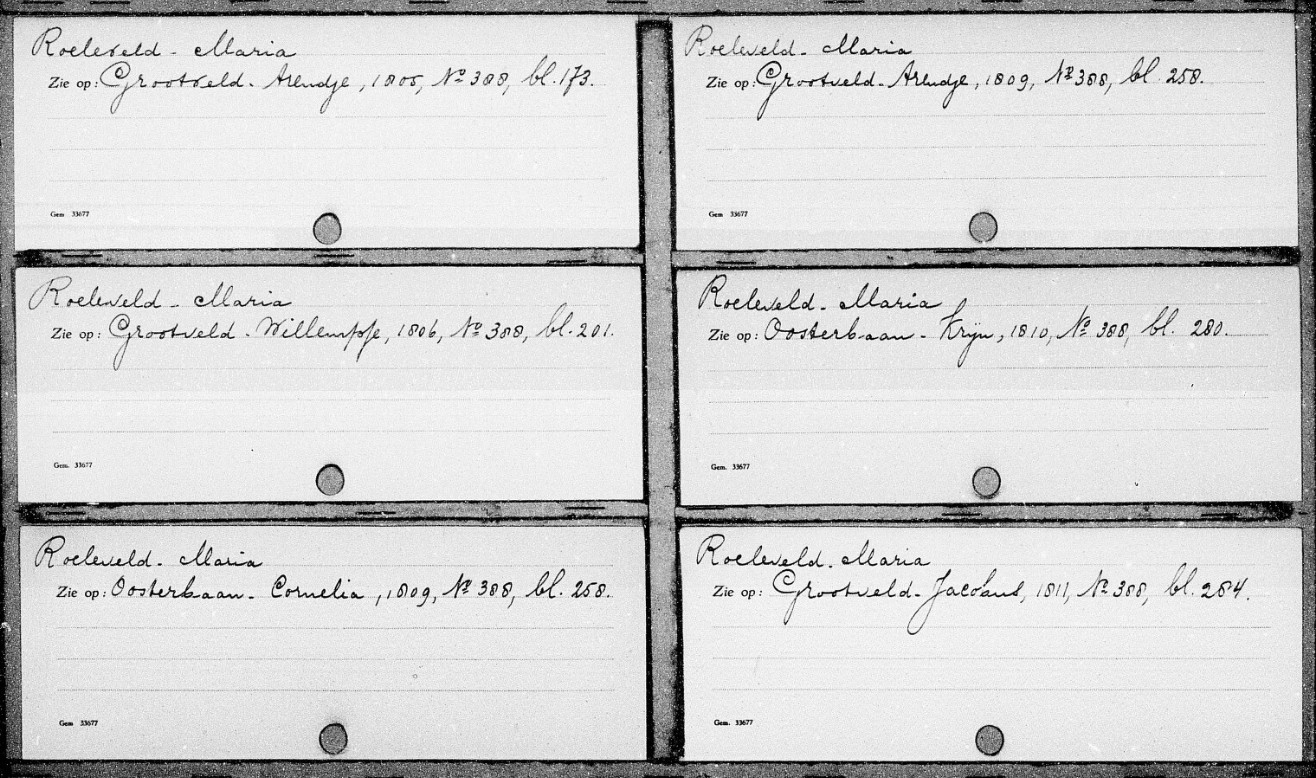 Roeleveld - Maria
Zie op: Grootveld - Arendje, 1805, No 388, bl. 173.
Gem 33677
Roeleveld - Maria
Zie op: Grootveld - Arendje, 1809, No 388, bl. 258.
Gem 33677
Roeleveld - Maria
Zie op: Grootveld - Willemptje, 1806, No 388, bl. 201.
Gem. 33677
Roeleveld - Maria
Zie op: Oosterbaan - Krijn, 1810, No 388, bl. 280.
Gem. 33677
Roeleveld - Maria
Zie op: Oosterbaan - Cornelia, 1809, No 388, bl. 258.
Gem 33677
Roeleveld - Maria
Zie op: Grootveld - Jacobus, 1811, No 388, bl. 284.
Gem. 33677